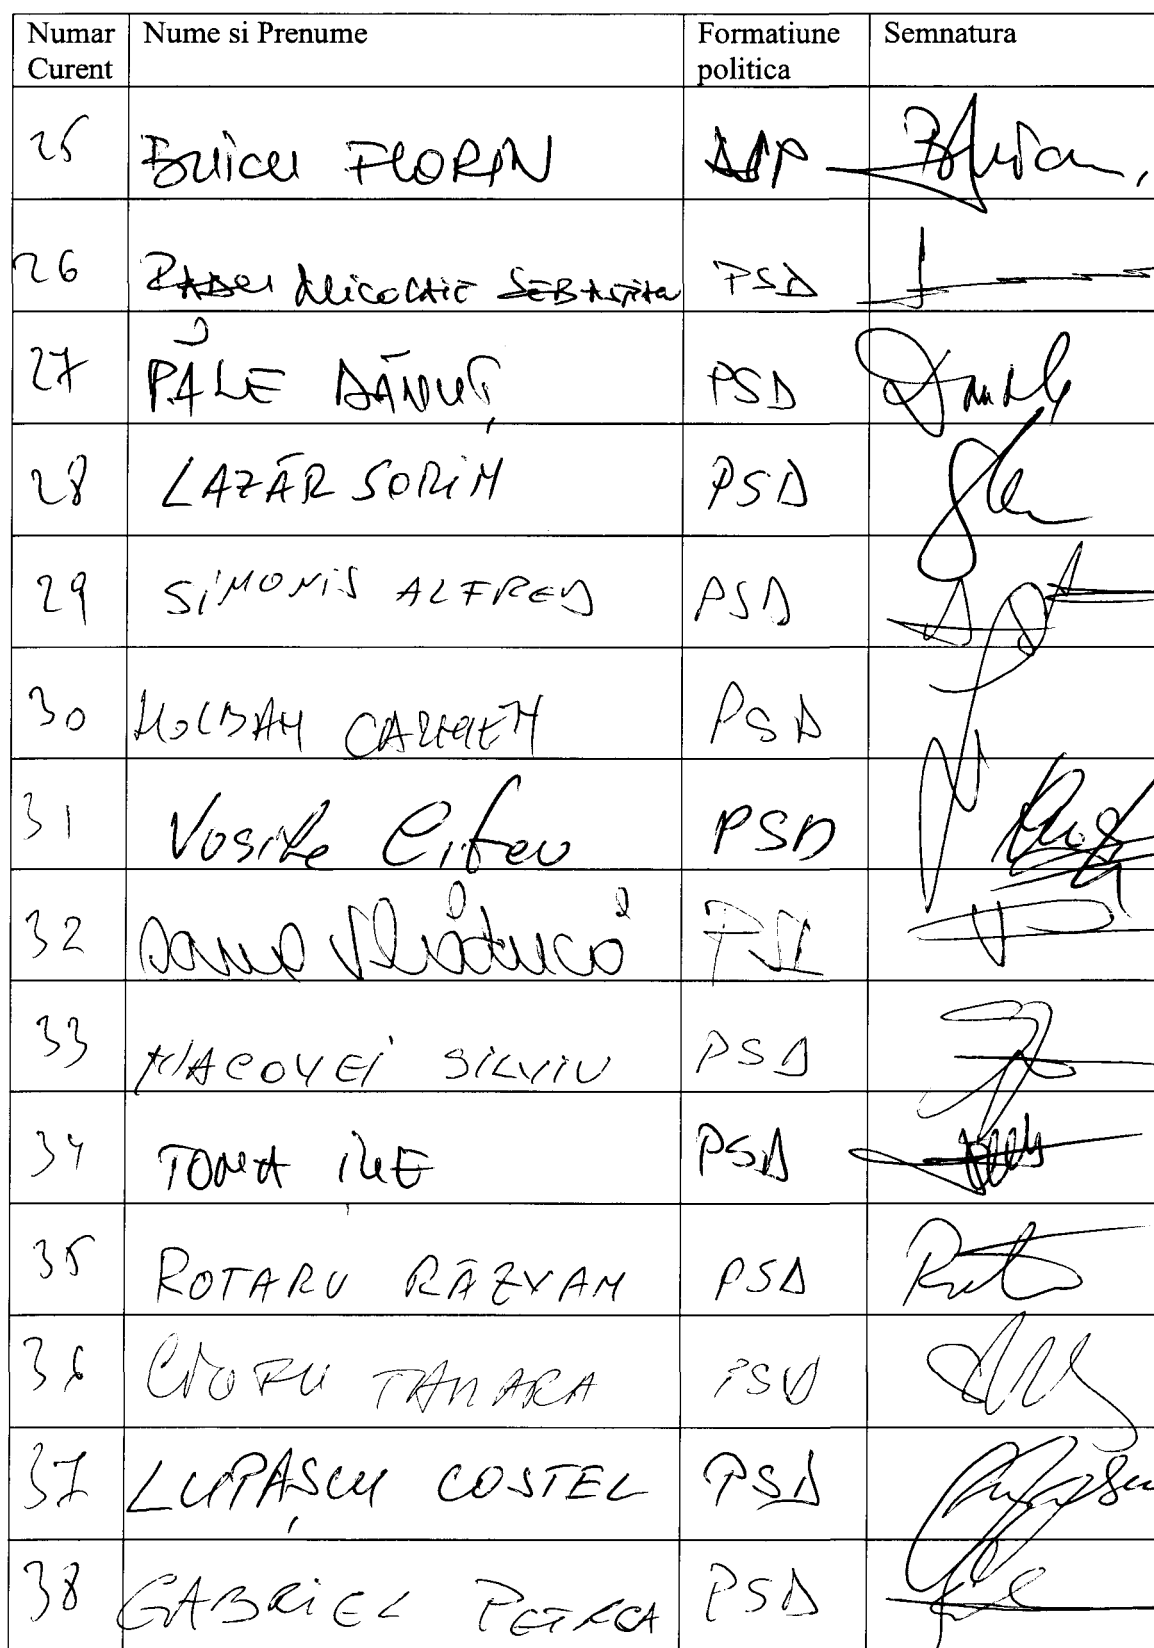 Numar Curent Nume si Prenume Formatiune politica Semnatura
25 Buicu FLORIN
26 RADOI NICOLAIE SEBASTIAN PSD
27 PĂLE DĂNUȚ PSD
28 LAZĂR SORIN PSD
29 SiMONiS ALFRED PSD
30 HOLBAN CARMEN PSD
31 Vasile Cîtea PSD
32 Dana Vlăducă PSD
33 MACOVEi SiLViU PSD
34 TOMA iLiE PSD
35 ROTARU RĂZVAN PSD
36 CIOFU TAMARA PSD
37 LUPAȘCU COSTEL PSD
38 GABRiEL PETREA PSD